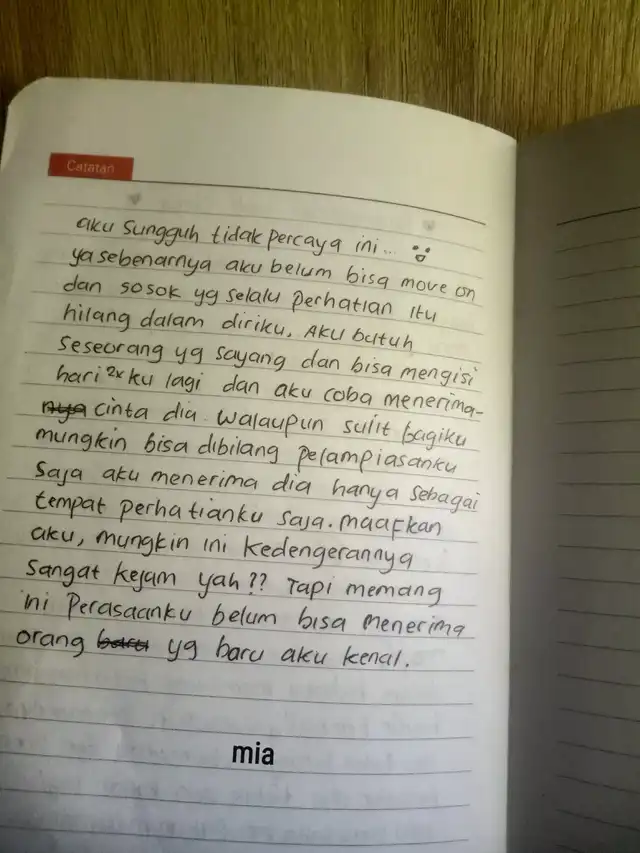 Catatan
aku sungguh tidak percaya ini...
ya sebenarnya aku belum bisa move on
dan sosok yg selalu perhatian itu
hilang dalam diriku, AKU butuh
seseorang yg sayang dan bisa mengisi
hari 2x ku lagi dan aku coba menerima-
nya cinta dia. walaupun sulit bagiku
mungkin bisa dibilang pelampiasanku
saja aku menerima dia hanya sebagai
tempat perhatianku saja. maafkan
aku, mungkin ini kedengerannya
sangat kejam yah?? Tapi memang
ini perasaanku belum bisa menerima
orang baru yg baru aku kenal.
mia